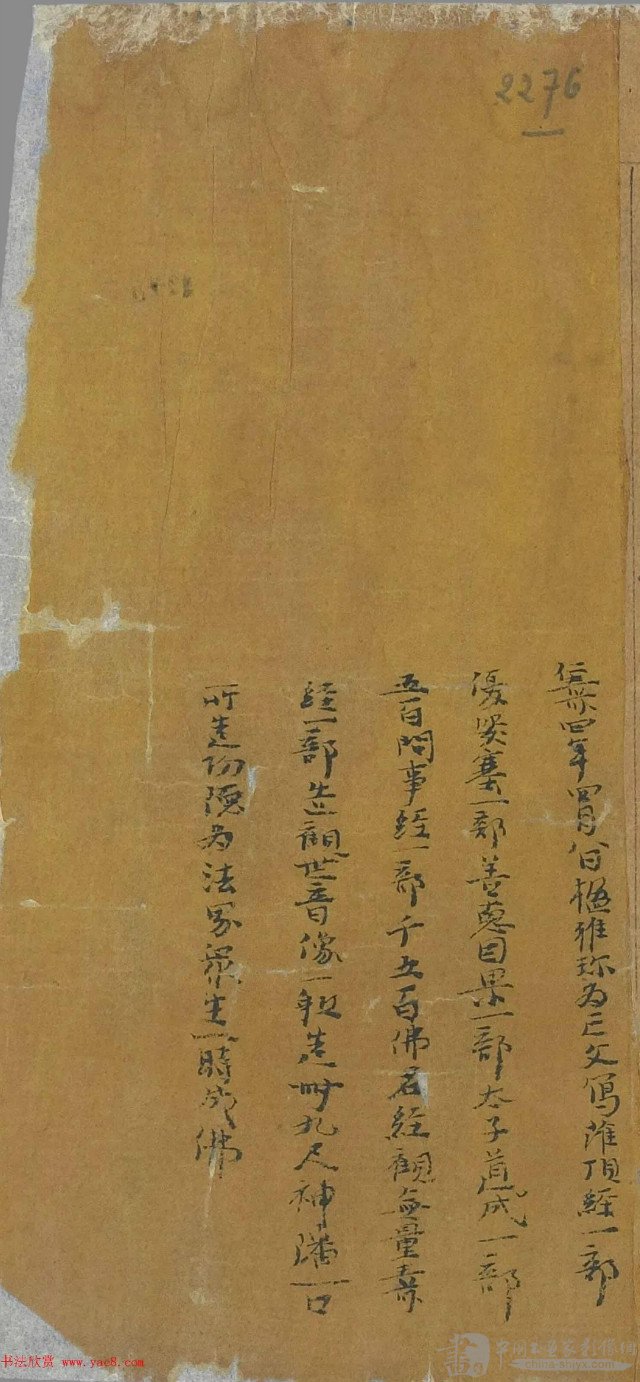 2276
仁壽四年四月八日楹雅珍為亡父寫灌頂經一部
優婆塞一部善惡因果一部太子道成一部
五百問事經一部千五百佛名經觀無量壽
經一部造觀世音像一軀造卌九尺神幡一口
所造功德為法界眾生一時成佛
书法欣赏 www.yac8.com
china-shiyx.com